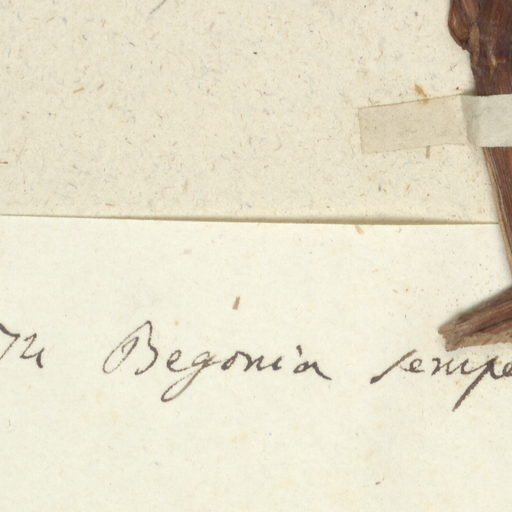 Begonia sempe